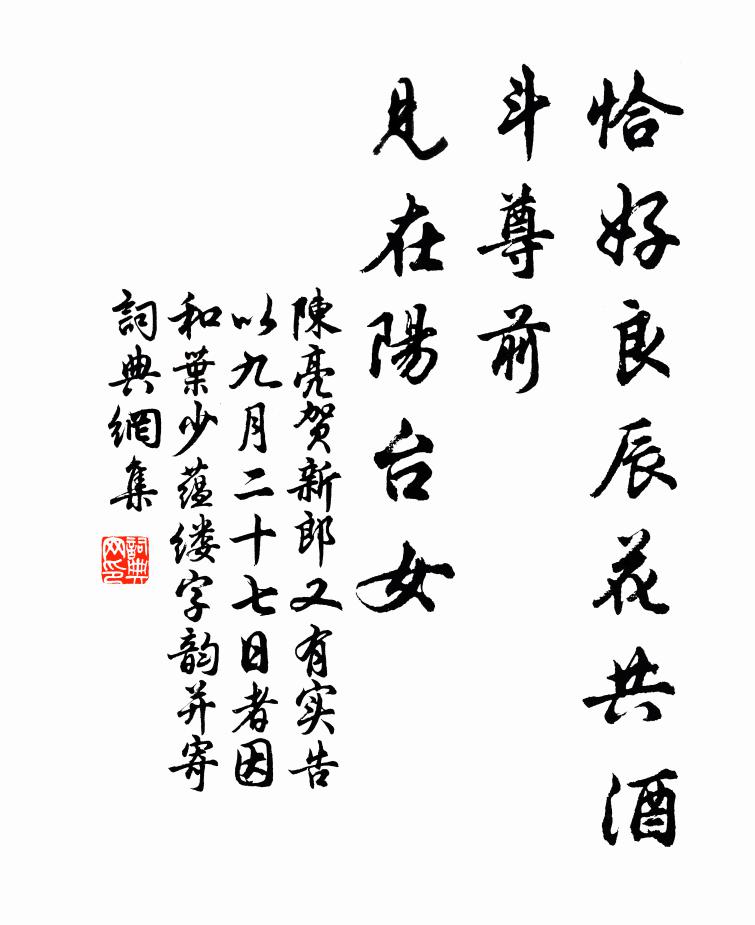 恰好良辰花共酒
斗尊前
見在陽台女
陳亮贺新郎又有实告
以九月二十七日者因
和葉少蕴缕字韵并寄
詞典網集
詞典
网印